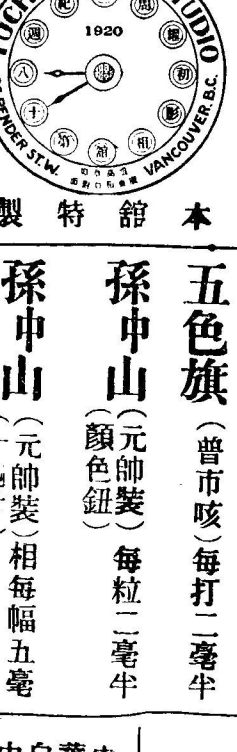 TUDIO
1920
周
耀
初
影
相
館
十
八
週
紀
PENDER ST.W.
VANCOUVER.B.C.
本館特製
五色旗（普市咳）每打二毫半
孫中山（元帥裝）（顏色鈕）每粒二毫半
孫中山（元帥裝）相每幅五毫